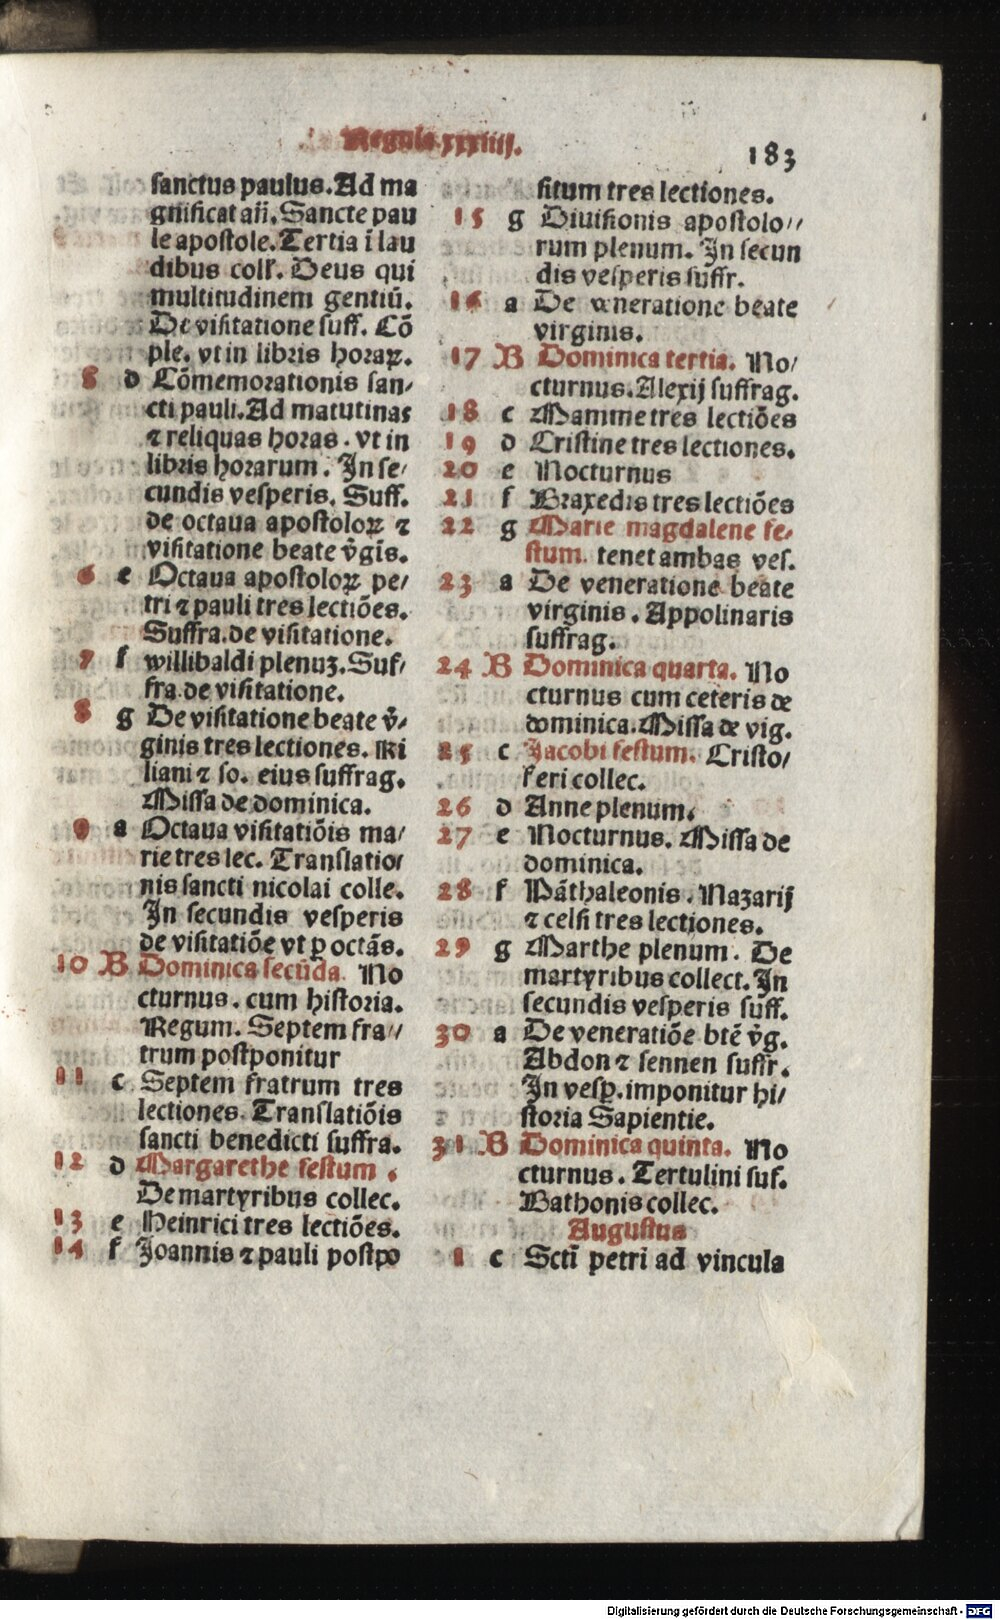 Regula xxxiiij.
183
sanctus paulus. Ad ma
gnificat añ. Sancte pau
le apostole. Tertia ĩ lau
dibus coll'. Deus qui
multitudinem gentiũ.
De visitatione suff. Cõ
ple. vt in libris horaꝝ.
5 d Cõmemorationis san⸗
cti pauli. Ad matutinas
⁊ reliquas horas. vt in
libris horarum. In se⸗
cundis vesperis. Suff.
de octaua apostoloꝝ ⁊
visitatione beate v̄gīs.
6 e Octaua apostoloꝝ pe⸗
tri ⁊ pauli tres lectiões.
Suffra. de visitatione.
7 f willibaldi plenuꝫ. Suf⸗
fra. de visitatione.
8 g De visitatione beate v̄⸗
ginis tres lectiones. Ki
liani ⁊ so. eius suffrag.
Missa de dominica.
9 a Octaua visitatiõis ma⸗
rie tres lec. Translatio⸗
nis sancti nicolai colle.
In secundis vesperis
de visitatiõe vt ꝑ octãs.
10 B Dominica secũda. No
cturnus. cum historia.
Regum. Septem fra⸗
trum postponitur
11 c Septem fratrum tres
lectiones. Translatiõis
sancti benedicti suffra.
12 d Margarethe festum.
De martyribus collec.
13 e Heinrici tres lectiões.
14 f Joannis ⁊ pauli postpo
situm tres lectiones.
15 g Diuisionis apostolo⸗
rum plenum. In secun
dis vesperis suffr.
16 a De veneratione beate
virginis.
17 B Dominica tertia. No⸗
cturnus. Alexij suffrag.
18 c Mamme tres lectiões
19 d Cristine tres lectiones.
20 e Nocturnus
21 f Praxedis tres lectiões
22 g Marie magdalene fe⸗
stum. tenet ambas ves.
23 a De veneratione beate
virginis. Appolinaris
suffrag.
24 B Dominica quarta. No
cturnus cum ceteris de
dominica. Missa de vig.
25 c Jacobi festum. Cristo⸗
feri collec.
26 d Anne plenum.
27 e Nocturnus. Missa de
dominica.
28 f Pãthaleonis. Nazarij
⁊ celsi tres lectiones.
29 g Marthe plenum. De
martyribus collect. In
secundis vesperis suff.
30 a De veneratiõe btē v̄g.
Abdon ⁊ sennen suffr.
In vesꝑ. imponitur hi⸗
storia Sapientie.
31 B Dominica quinta. No
cturnus. Tertulini suf.
Bathonis collec.
Augustus
1 c Sctī petri ad vincula
Digitalisierung gefördert durch die Deutsche Forschungsgemeinschaft - DFG